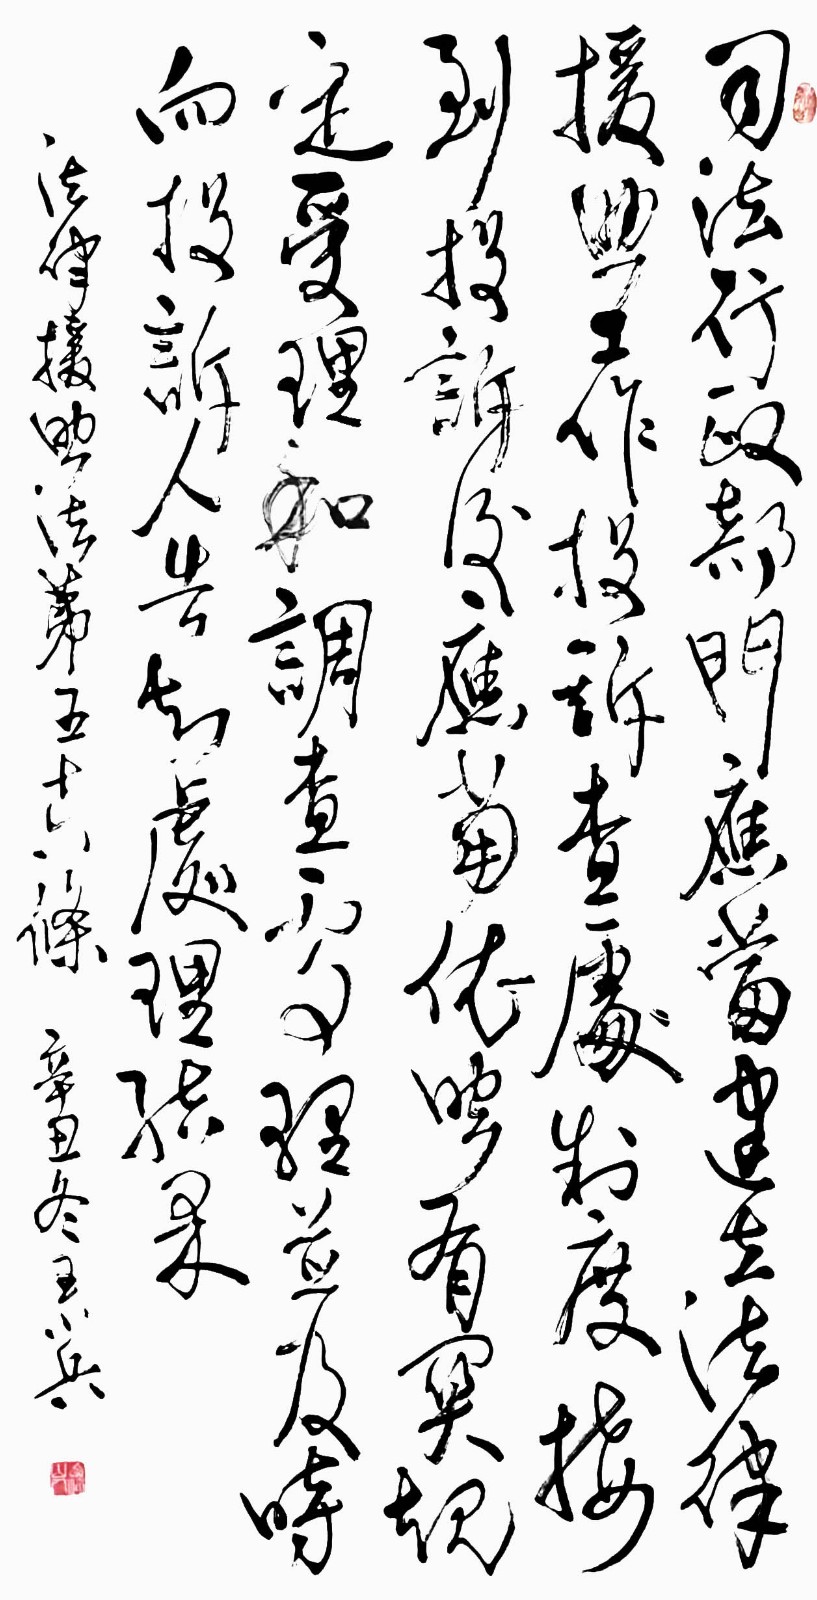 司法行政部門應當建立法律
援助工作投訴查處制度接
到投訴後應當依照有關規
定受理和調查處理並及時
向投訴人告知處理結果
法律援助法第五十六條 辛丑冬王小兵